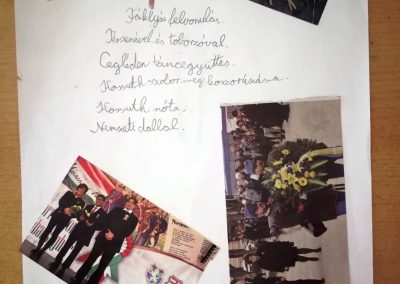 Fáklyás felvonulás.
Térzenével és toborzóval.
Cegléden táncegyüttes.
Kossuth szobor megkoszorúzása.
Kossuth nóta.
Nemzeti dallal.